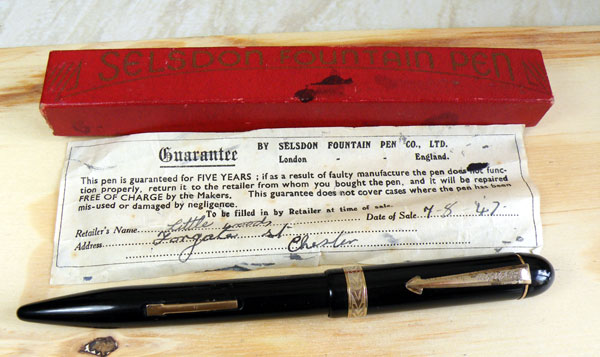 SELSDON FOUNTAIN PEN
Guarantee
BY SELSDON FOUNTAIN PEN CO., LTD.
London - - England.
This pen is guaranteed for FIVE YEARS ; if as a result of faulty manufacture the pen does not func-
tion properly, return it to the retailer from whom you bought the pen, and it will be repaired
FREE OF CHARGE by the Makers. This guarantee does not cover cases where the pen has been
mis-used or damaged by negligence.
To be filled in by Retailer at time of sale.
Retailer's Name Little Date of Sale 7-8 '47
Address St
Chester